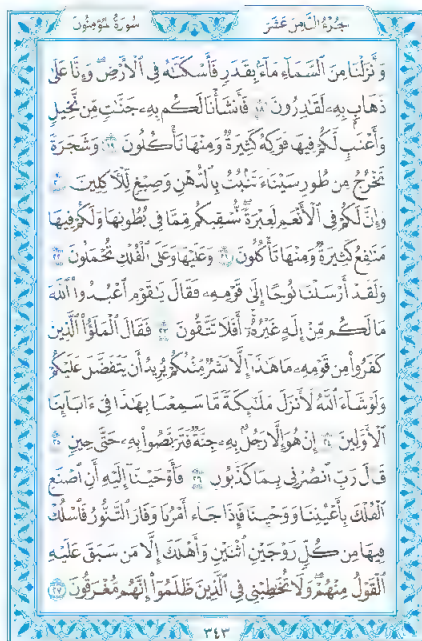 سورة المؤمنون الجزء الثامن عشر
وَأَنزَلْنَا مِنَ ٱلسَّمَآءِ مَآءًۢ بِقَدَرٍ فَأَسْكَنَّٰهُ فِى ٱلْأَرْضِ ۖ وَإِنَّا عَلَىٰ
ذَهَابٍۭ بِهِۦ لَقَٰدِرُونَ ١٨ فَأَنشَأْنَا لَكُم بِهِۦ جَنَّٰتٍ مِّن نَّخِيلٍ
وَأَعْنَٰبٍ لَّكُمْ فِيهَا فَوَٰكِهُ كَثِيرَةٌ وَمِنْهَا تَأْكُلُونَ ١٩ وَشَجَرَةً
تَخْرُجُ مِن طُورِ سَيْنَآءَ تَنۢبُتُ بِٱلدُّهْنِ وَصِبْغٍ لِّلْءَاكِلِينَ ٢٠
وَإِنَّ لَكُمْ فِى ٱلْأَنْعَٰمِ لَعِبْرَةً ۖ نُّسْقِيكُم مِّمَّا فِى بُطُونِهَا وَلَكُمْ فِيهَا
مَنَٰفِعُ كَثِيرَةٌ وَمِنْهَا تَأْكُلُونَ ٢١ وَعَلَيْهَا وَعَلَى ٱلْفُلْكِ تُحْمَلُونَ ٢٢
وَلَقَدْ أَرْسَلْنَا نُوحًا إِلَىٰ قَوْمِهِۦ فَقَالَ يَٰقَوْمِ ٱعْبُدُوا۟ ٱللَّهَ
مَا لَكُم مِّنْ إِلَٰهٍ غَيْرُهُۥٓ ۖ أَفَلَا تَتَّقُونَ ٢٣ فَقَالَ ٱلْمَلَؤُا۟ ٱلَّذِينَ
كَفَرُوا۟ مِن قَوْمِهِۦ مَا هَٰذَآ إِلَّا بَشَرٌ مِّثْلُكُمْ يُرِيدُ أَن يَتَفَضَّلَ عَلَيْكُمْ
وَلَوْ شَآءَ ٱللَّهُ لَأَنزَلَ مَلَٰٓئِكَةً مَّا سَمِعْنَا بِهَٰذَا فِىٓ ءَابَآئِنَا
ٱلْأَوَّلِينَ ٢٤ إِنْ هُوَ إِلَّا رَجُلٌۢ بِهِۦ جِنَّةٌ فَتَرَبَّصُوا۟ بِهِۦ حَتَّىٰ حِينٍ ٢٥
قَالَ رَبِّ ٱنصُرْنِى بِمَا كَذَّبُونِ ٢٦ فَأَوْحَيْنَآ إِلَيْهِ أَنِ ٱصْنَعِ
ٱلْفُلْكَ بِأَعْيُنِنَا وَوَحْيِنَا فَإِذَا جَآءَ أَمْرُنَا وَفَارَ ٱلتَّنُّورُ ۙ فَٱسْلُكْ
فِيهَا مِن كُلٍّ زَوْجَيْنِ ٱثْنَيْنِ وَأَهْلَكَ إِلَّا مَن سَبَقَ عَلَيْهِ
ٱلْقَوْلُ مِنْهُمْ ۖ وَلَا تُخَٰطِبْنِى فِى ٱلَّذِينَ ظَلَمُوٓا۟ ۖ إِنَّهُم مُّغْرَقُونَ ٢٧
٣٤٣